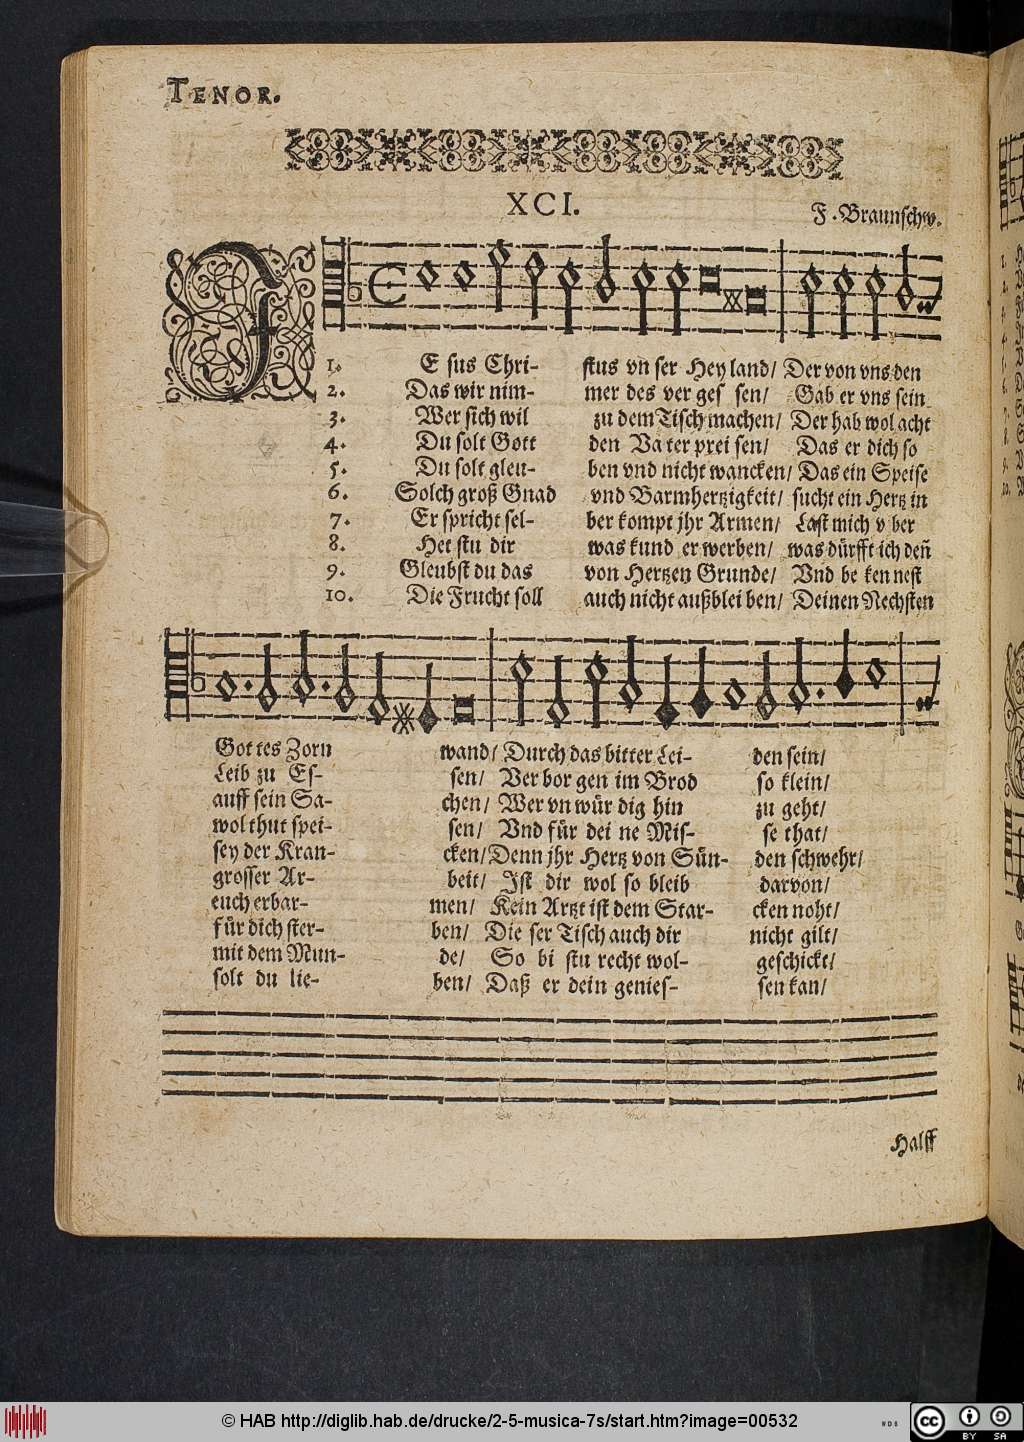 TENOR.
XCI.
F. Braunschw.
J
1. E sus Chri- stus vn ser Hey land/ Der von vns den
2. Das wir nim- mer des ver ges sen/ Gab er vns sein
3. Wer sich wil zu dem Tisch machen/ Der hab wol acht
4. Du solt Gott den Va ter prei sen/ Das er dich so
5. Du solt gleu- ben vnd nicht wancken/ Das ein Speise
6. Solch groß Gnad vnd Barmhertzigkeit/ sucht ein Hertz in
7. Er spricht sel- ber kompt jhr Armen/ Last mich v ber
8. Het stu dir was kund er werben/ was dürfft ich deñ
9. Gleubst du das von Hertzen Grunde/ Vnd be ken nest
10. Die Frucht soll auch nicht außblei ben/ Deinen Nechsten
Got tes Zorn wand/ Durch das bitter Lei- den sein/
Leib zu Es- sen/ Ver bor gen im Brod so klein/
auff sein Sa- chen/ Wer vn wür dig hin zu geht/
wol thut spei- sen/ Vnd für dei ne Mis- se that/
sey der Kran- cken/ Denn jhr Hertz von Sün- den schwehr/
grosser Ar- beit/ Ist dir wol so bleib darvon/
euch erbar- men/ Kein Artzt ist dem Star- cken noht/
für dich ster- ben/ Die ser Tisch auch dir nicht gilt/
mit dem Mun- de/ So bi stu recht wol- geschickt/
solt du lie- ben/ Daß er dein genies- sen kan/
Halff
© HAB http://diglib.hab.de/drucke/2-5-musica-7s/start.htm?image=00532
WDB
cc BY SA